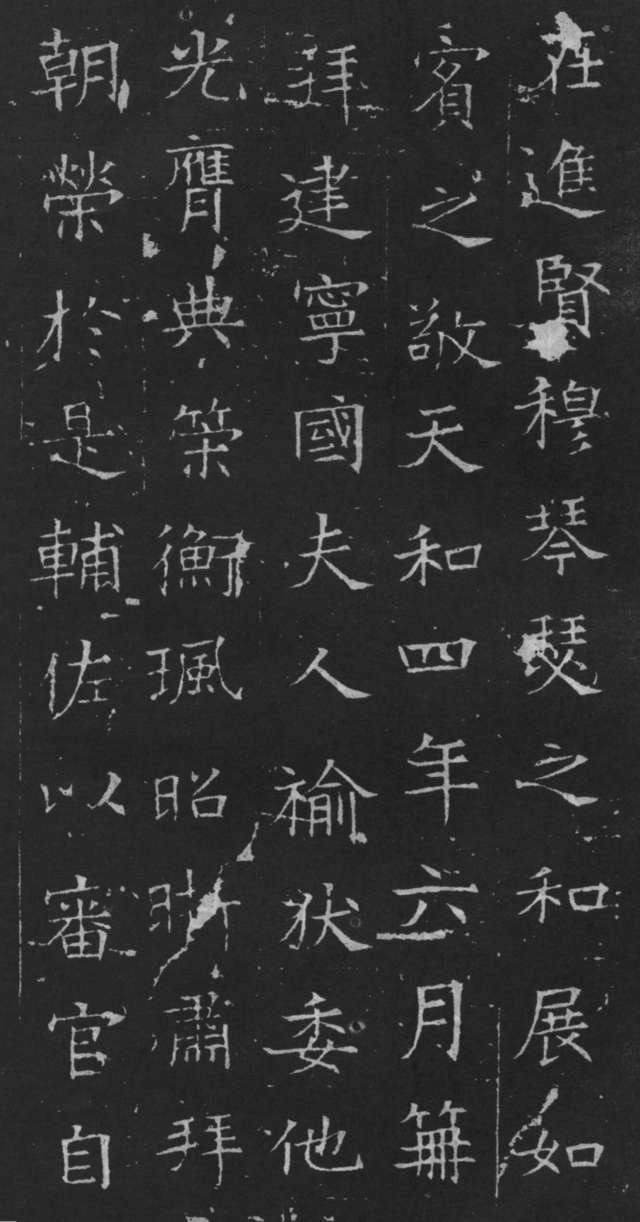 在進賢穆琴瑟之和展如
賓之敬天和四年六月冊
拜建寧國夫人褕狄委他
光膺典策衡珮昭晣肅拜
朝榮於是輔佐以審官自